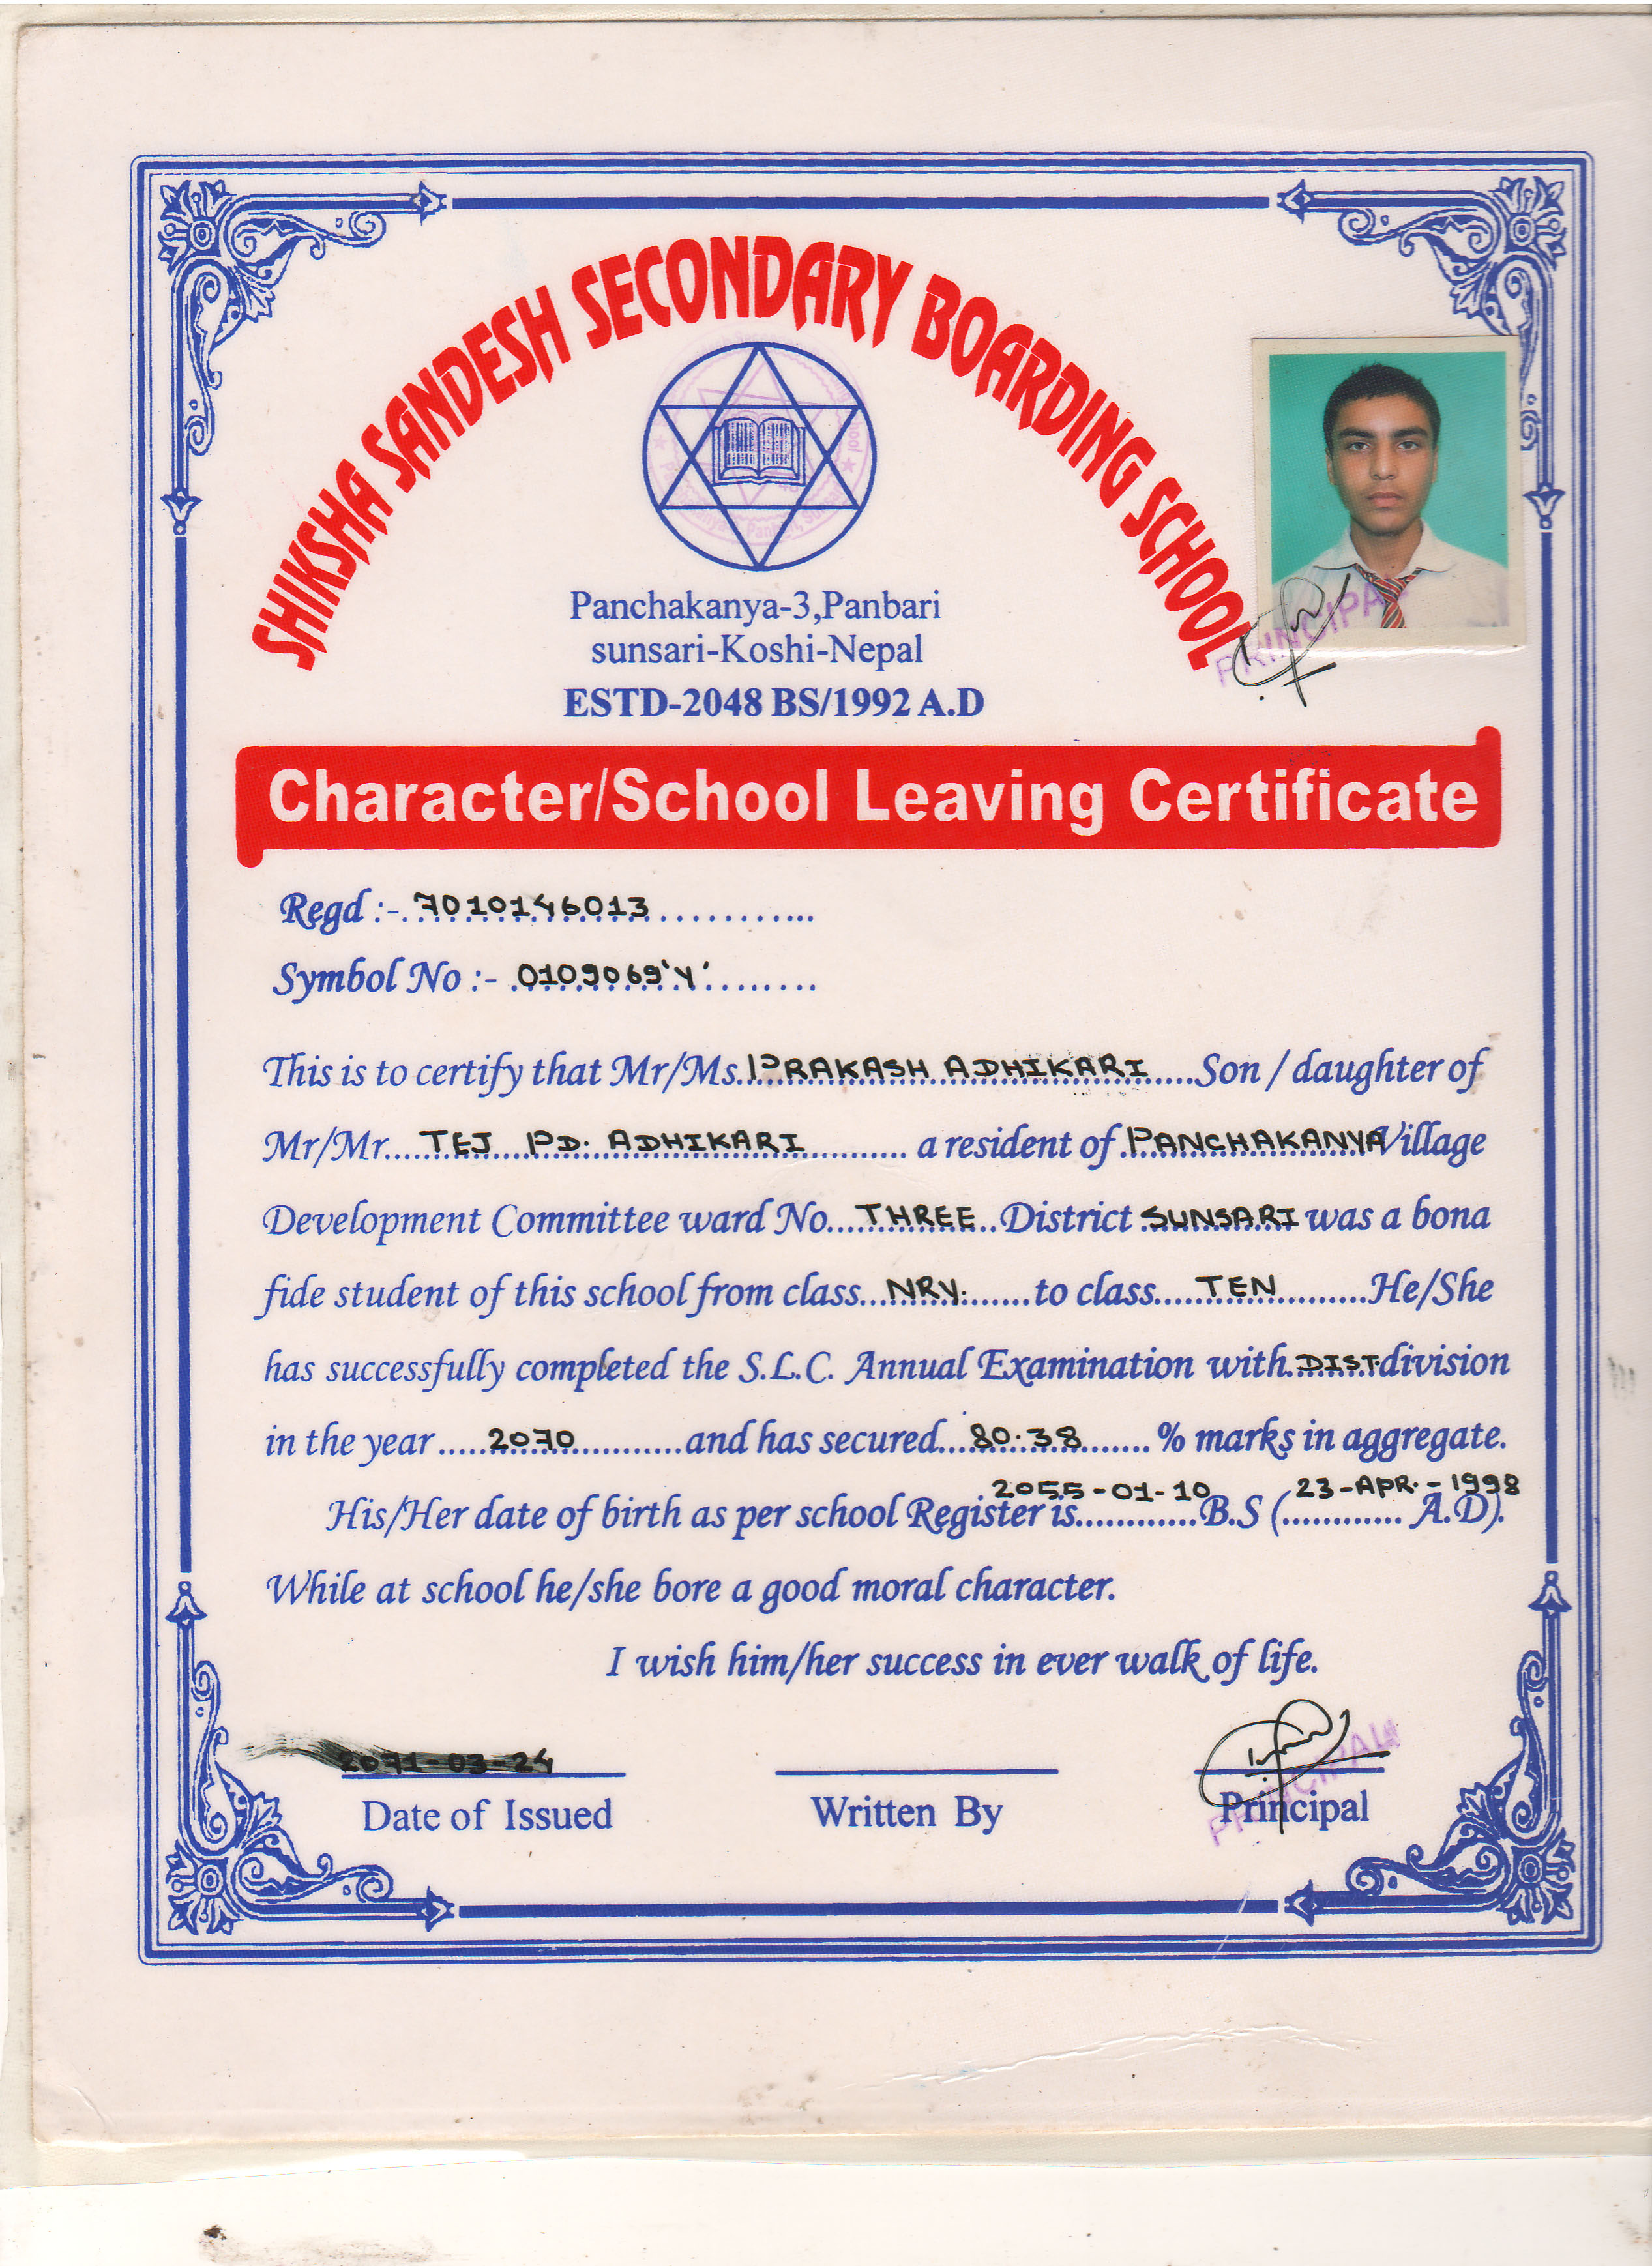 SHIKSHA SANDESH SECONDARY BOARDING SCHOOL
Panchakanya-3,Panbari
sunsari-Koshi-Nepal
ESTD-2048 BS/1992 A.D
PRINCIPAL
Character/School Leaving Certificate
Regd :-. 7010146013............
Symbol No :- .0109069'Y'........
This is to certify that Mr/Ms. PRAKASH ADHIKARI.....Son / daughter of
Mr/Mr.... TEJ PD. ADHIKARI........... a resident of PANCHAKANYA Village
Development Committee ward No... THREE...District SUNSARI was a bona
fide student of this school from class... NRY.......to class..... TEN.........He/She
has successfully completed the S.L.C. Annual Examination with. DIST. division
in the year ..... 2070............and has secured... 80.38....... % marks in aggregate.
2055-01-10 23-APR.-1998
His/Her date of birth as per school Register is............B.S (............ A.D).
While at school he/she bore a good moral character.
I wish him/her success in ever walk of life.
2071-03-24
PRINCIPAL
Date of Issued Written By Principal